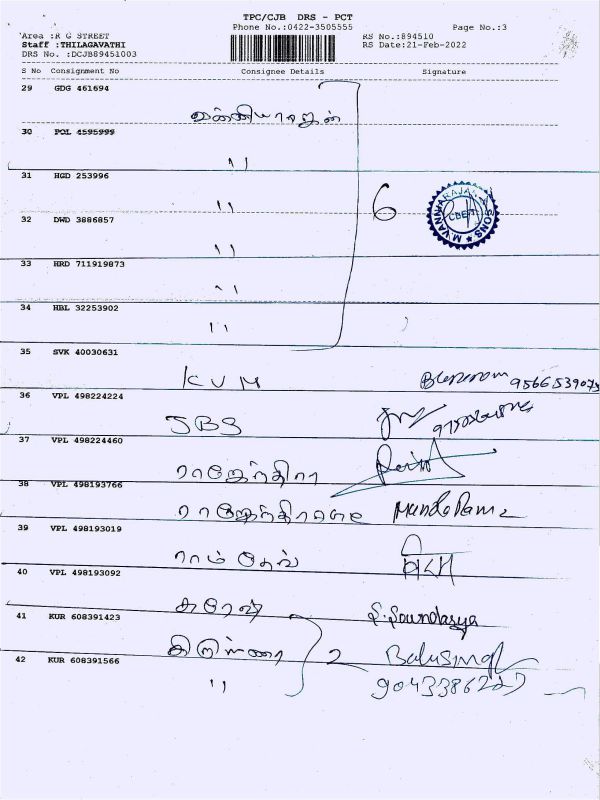 TPC/CJB DRS - PCT
Phone No.:0422-3505555
Page No.:3
Area :R G STREET
RS No.:894510
Staff :THILAGAVATHI
RS Date:21-Feb-2022
DRS No. :DCJB89451003
S No Consignment No Consignee Details Signature
29 GDG 461694
வன்னியராஜன்
30 POL 4595999
"
31 HGD 253996
" 6
32 DWD 3886857
"
33 HRD 711919873
"
34 HBL 32253902
"
35 SVK 40030631
KVM
36 VPL 498224224
SBS
37 VPL 498224460
ராஜேந்திரா
38 VPL 498193766
39 VPL 498193019
ராம் தேவ்
40 VPL 498193092
41 KUR 608391423
S. Soundarya
2 Balusingh
42 KUR 608391566
"